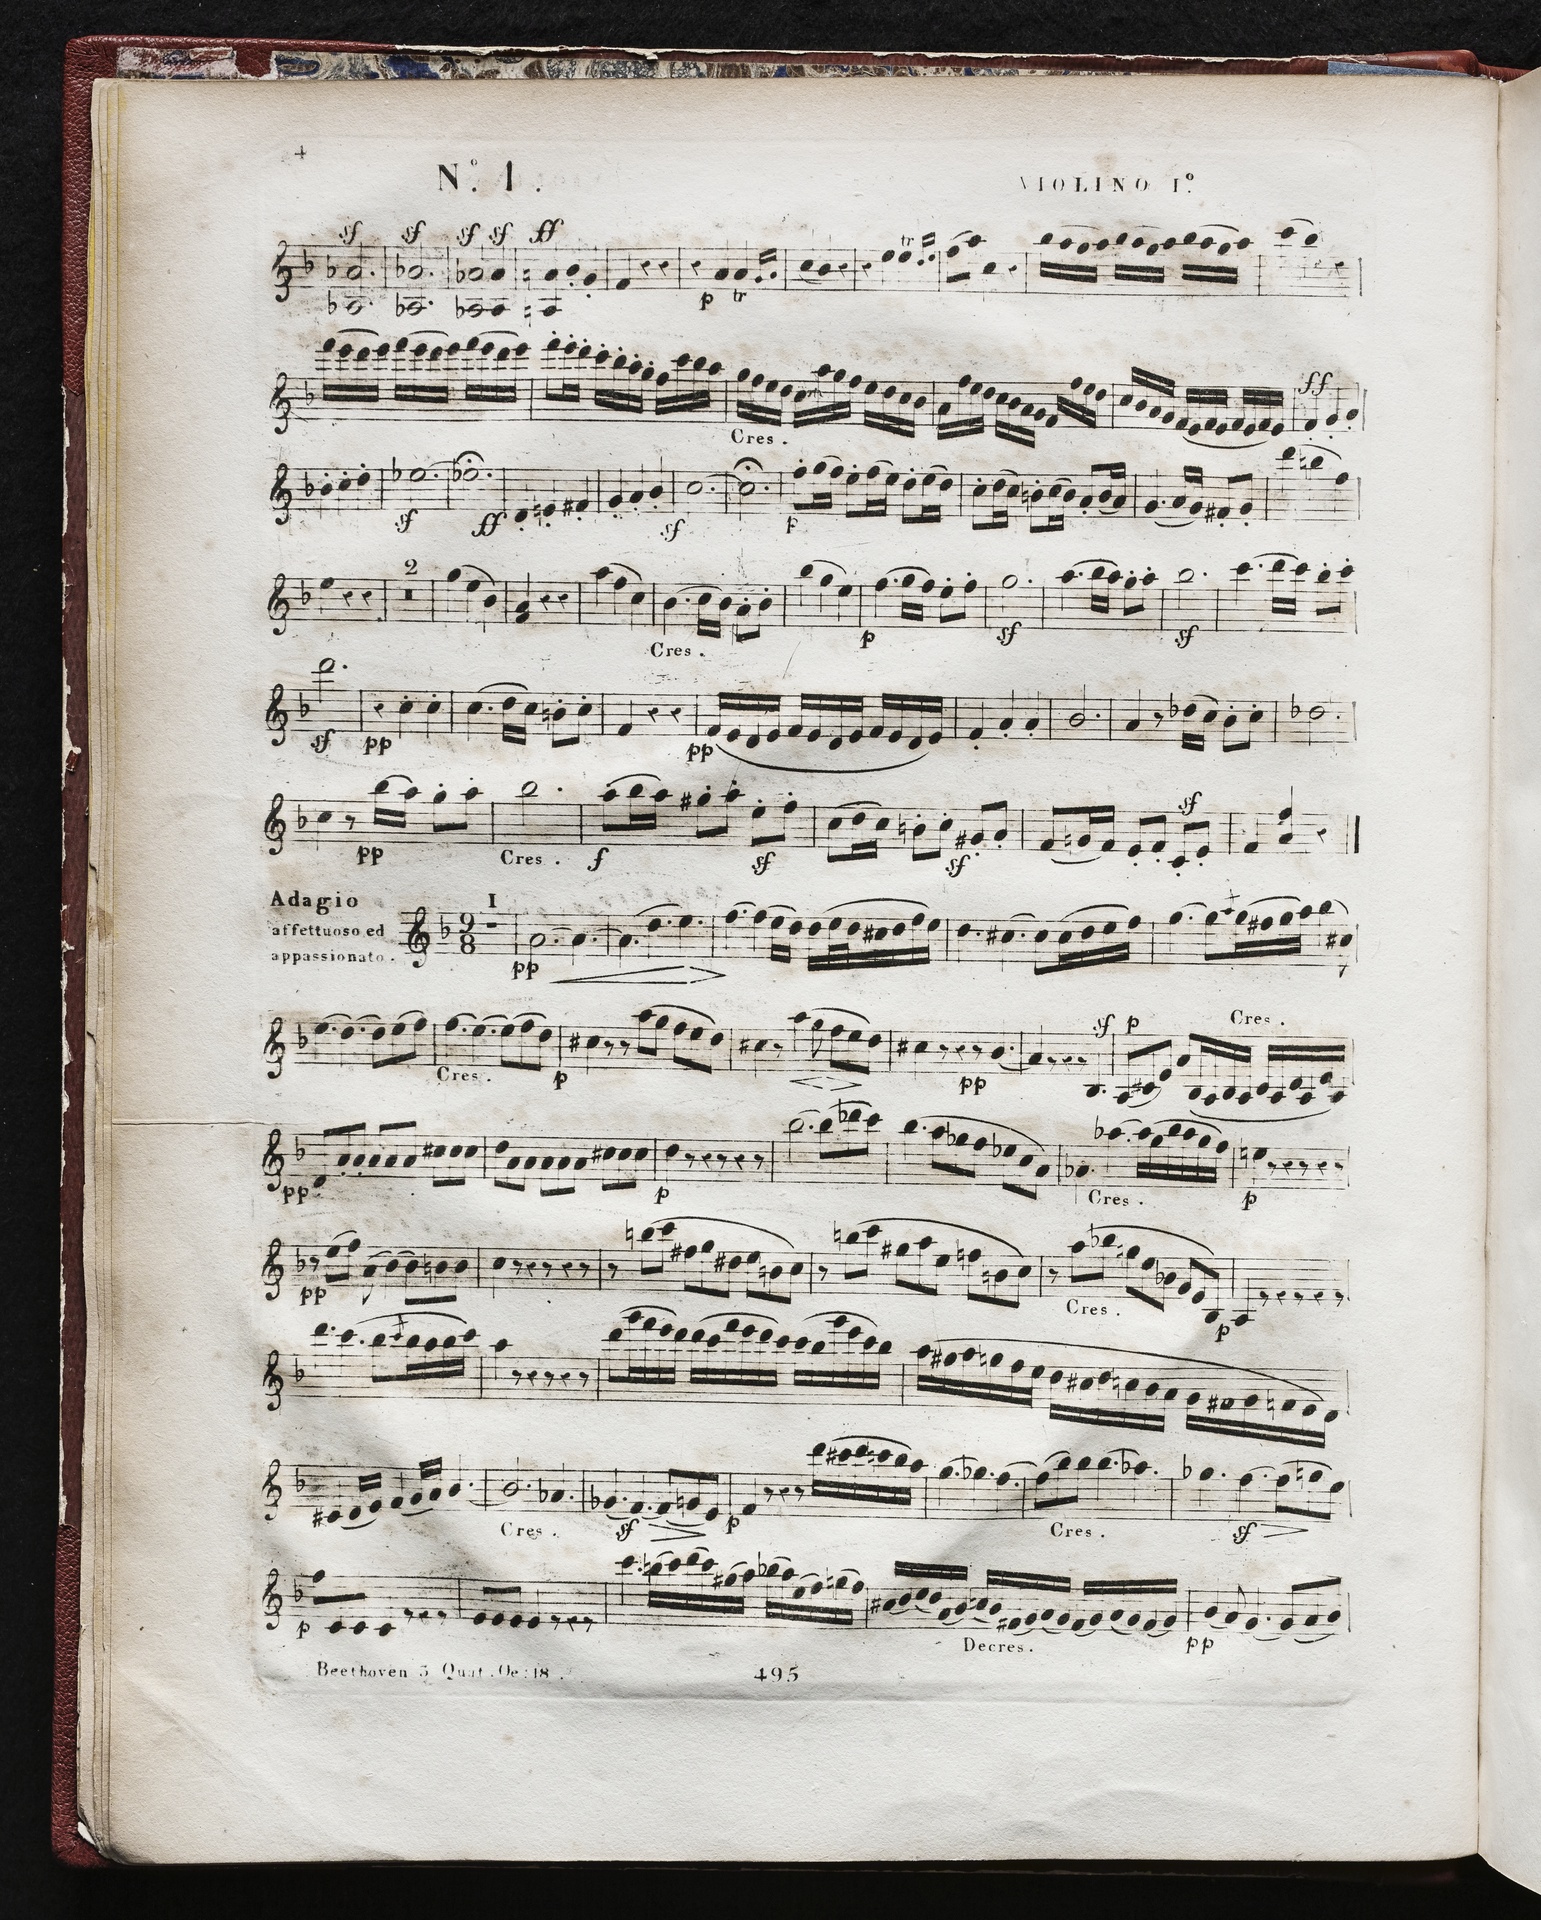 4
Nº. 1.
VIOLINO Iº.
sf sf sf sf ff
p tr tr
Cres. ff
sf ff sf p
2
Cres. p sf sf
sf pp pp
sf
pp Cres. f sf sf
Adagio
affettuoso ed
appassionato.
I
9
8
pp
sf p Cres.
Cres. p pp
pp p Cres. p
pp Cres. p
Cres. sf p Cres. sf
p Decres. pp
Beethoven 3 Quat. Oe: 18.
495